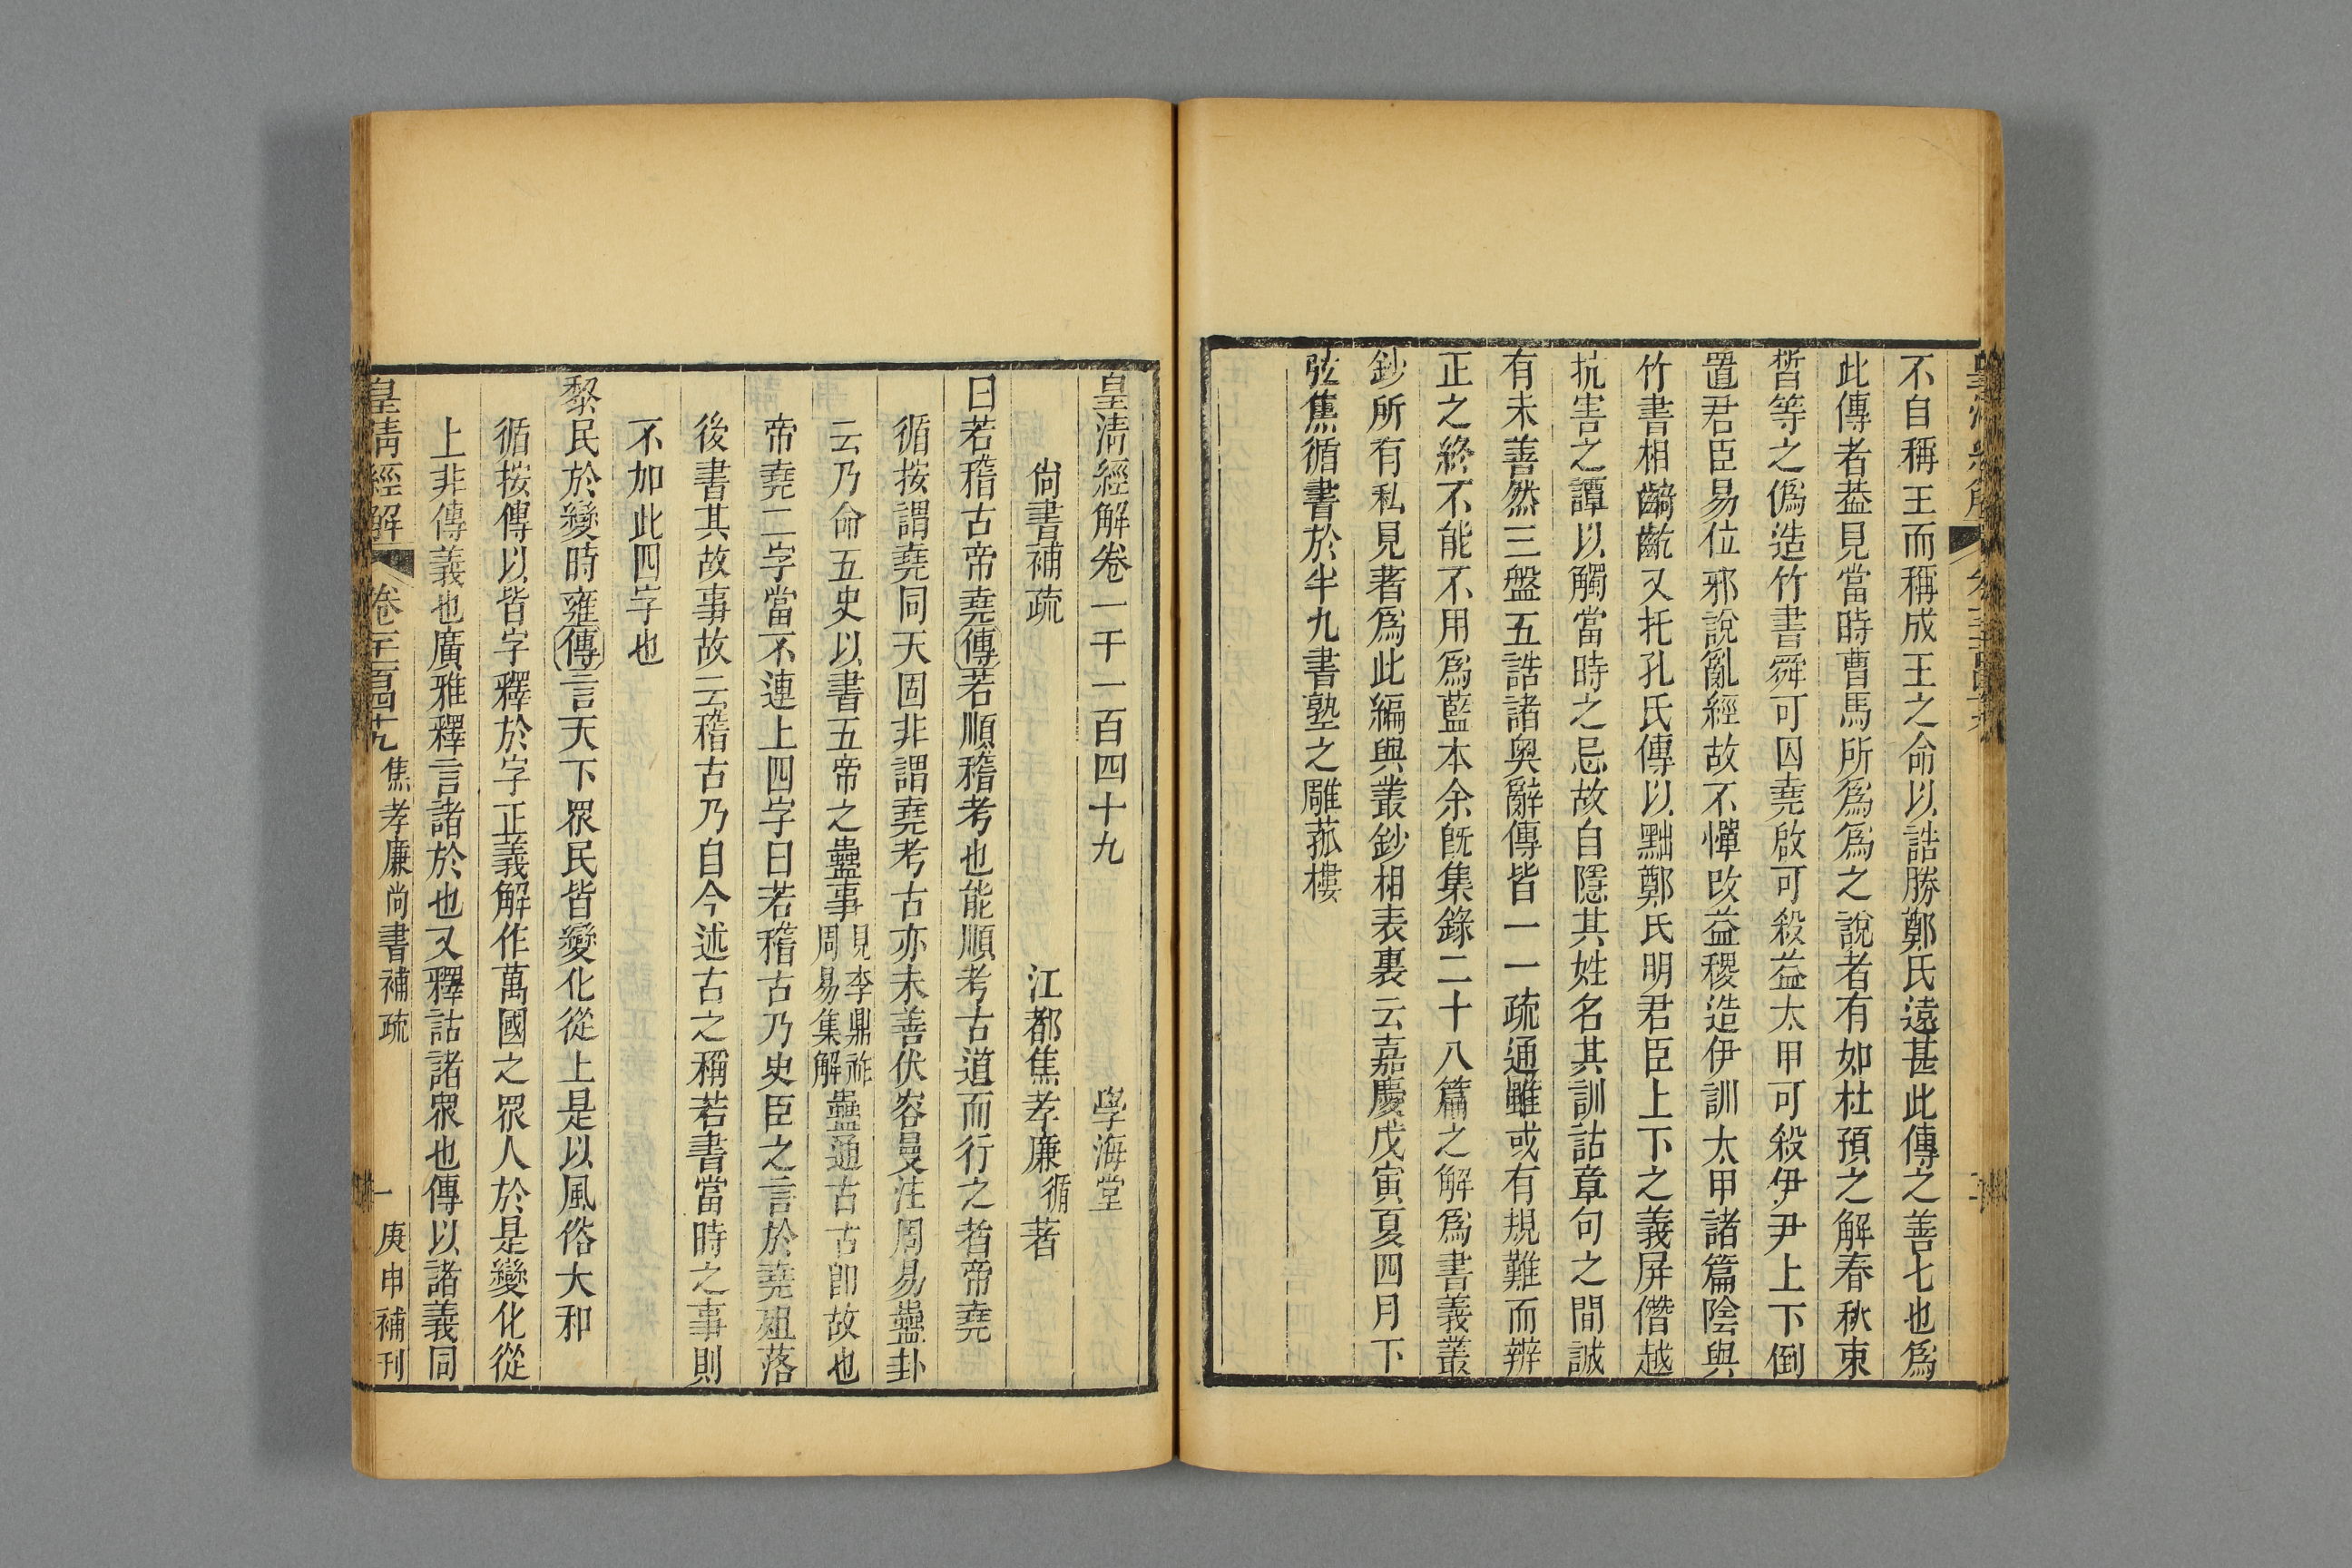 不自稱王而稱成王之命以誥勝鄭氏遠甚此傳之善七也爲
此傳者葢見當時曹馬所爲爲之說者有如杜預之解春秋束
晳等之僞造竹書舜可囚堯啟可殺益太甲可殺伊尹上下倒
置君臣易位邪說亂經故不憚改益稷造伊訓太甲諸篇陰與
竹書相齮齕又托孔氏傳以黜鄭氏明君臣上下之義屏僭越
抗害之譚以觸當時之忌故自隱其姓名其訓詁章句之間誠
有未善然三盤五誥諸奧辭傳皆一一疏通雖或有規難而辨
正之終不能不用爲藍本余旣集錄二十八篇之解爲書義叢
鈔所有私見著爲此編與叢鈔相表裏云嘉慶戊寅夏四月下
弦焦循書於半九書塾之雕菰樓
皇淸經解卷一千一百四十九 學海堂
尙書補疏 江都焦孝廉循著
曰若稽古帝堯傳若順稽考也能順考古道而行之者帝堯
循按謂堯同天固非謂堯考古亦未善伏容曼注周易蠱卦
云乃命五史以書五帝之蠱事見李鼎祚周易集解蠱通古古卽故也
帝堯二字當不連上四字曰若稽古乃史臣之言於堯殂落
後書其故事故云稽古乃自今述古之稱若書當時之事則
不加此四字也
黎民於變時雍傳言天下衆民皆變化從上是以風俗大和
循按傳以皆字釋於字正義解作萬國之衆人於是變化從
上非傳義也廣雅釋言諸於也又釋詁諸衆也傳以諸義同
皇淸經解 卷千一百四十九 焦孝廉尚書補疏 一 庚申補刊